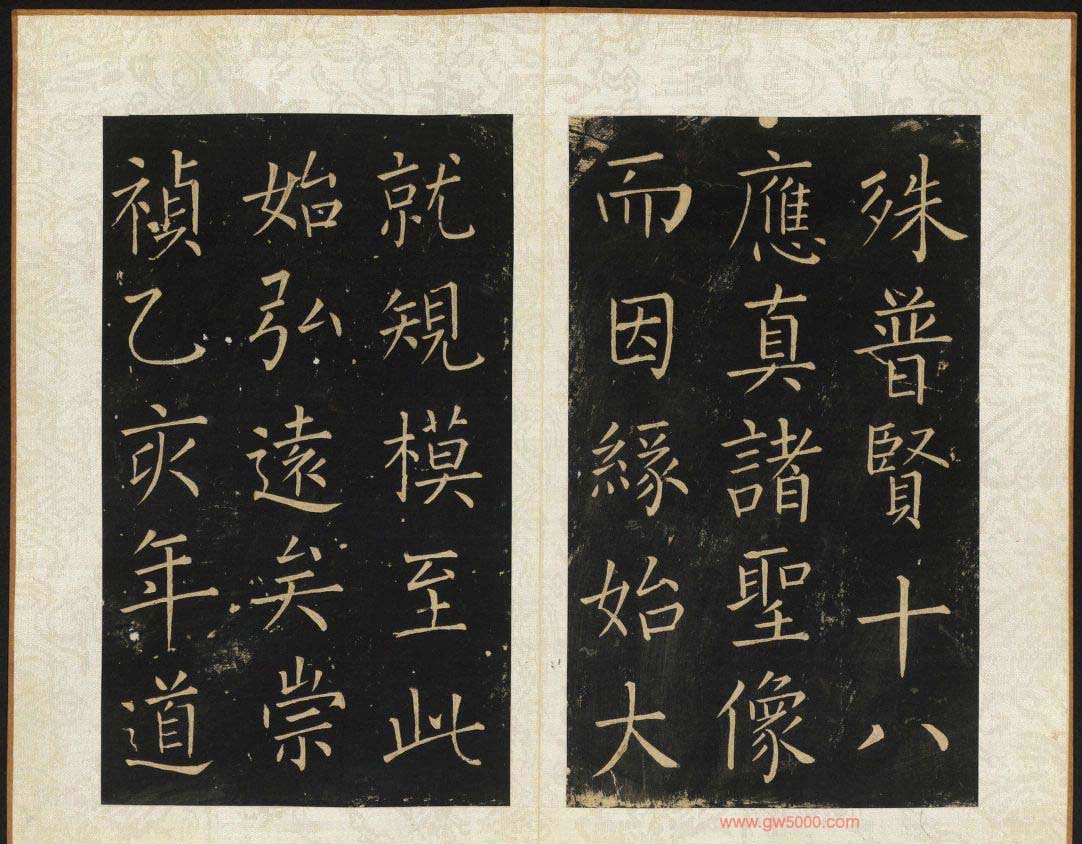 殊普賢十八
應真諸聖像
而因緣始大
就規模至此
始弘遠矣崇
禎乙亥年道
www.gw5000.com